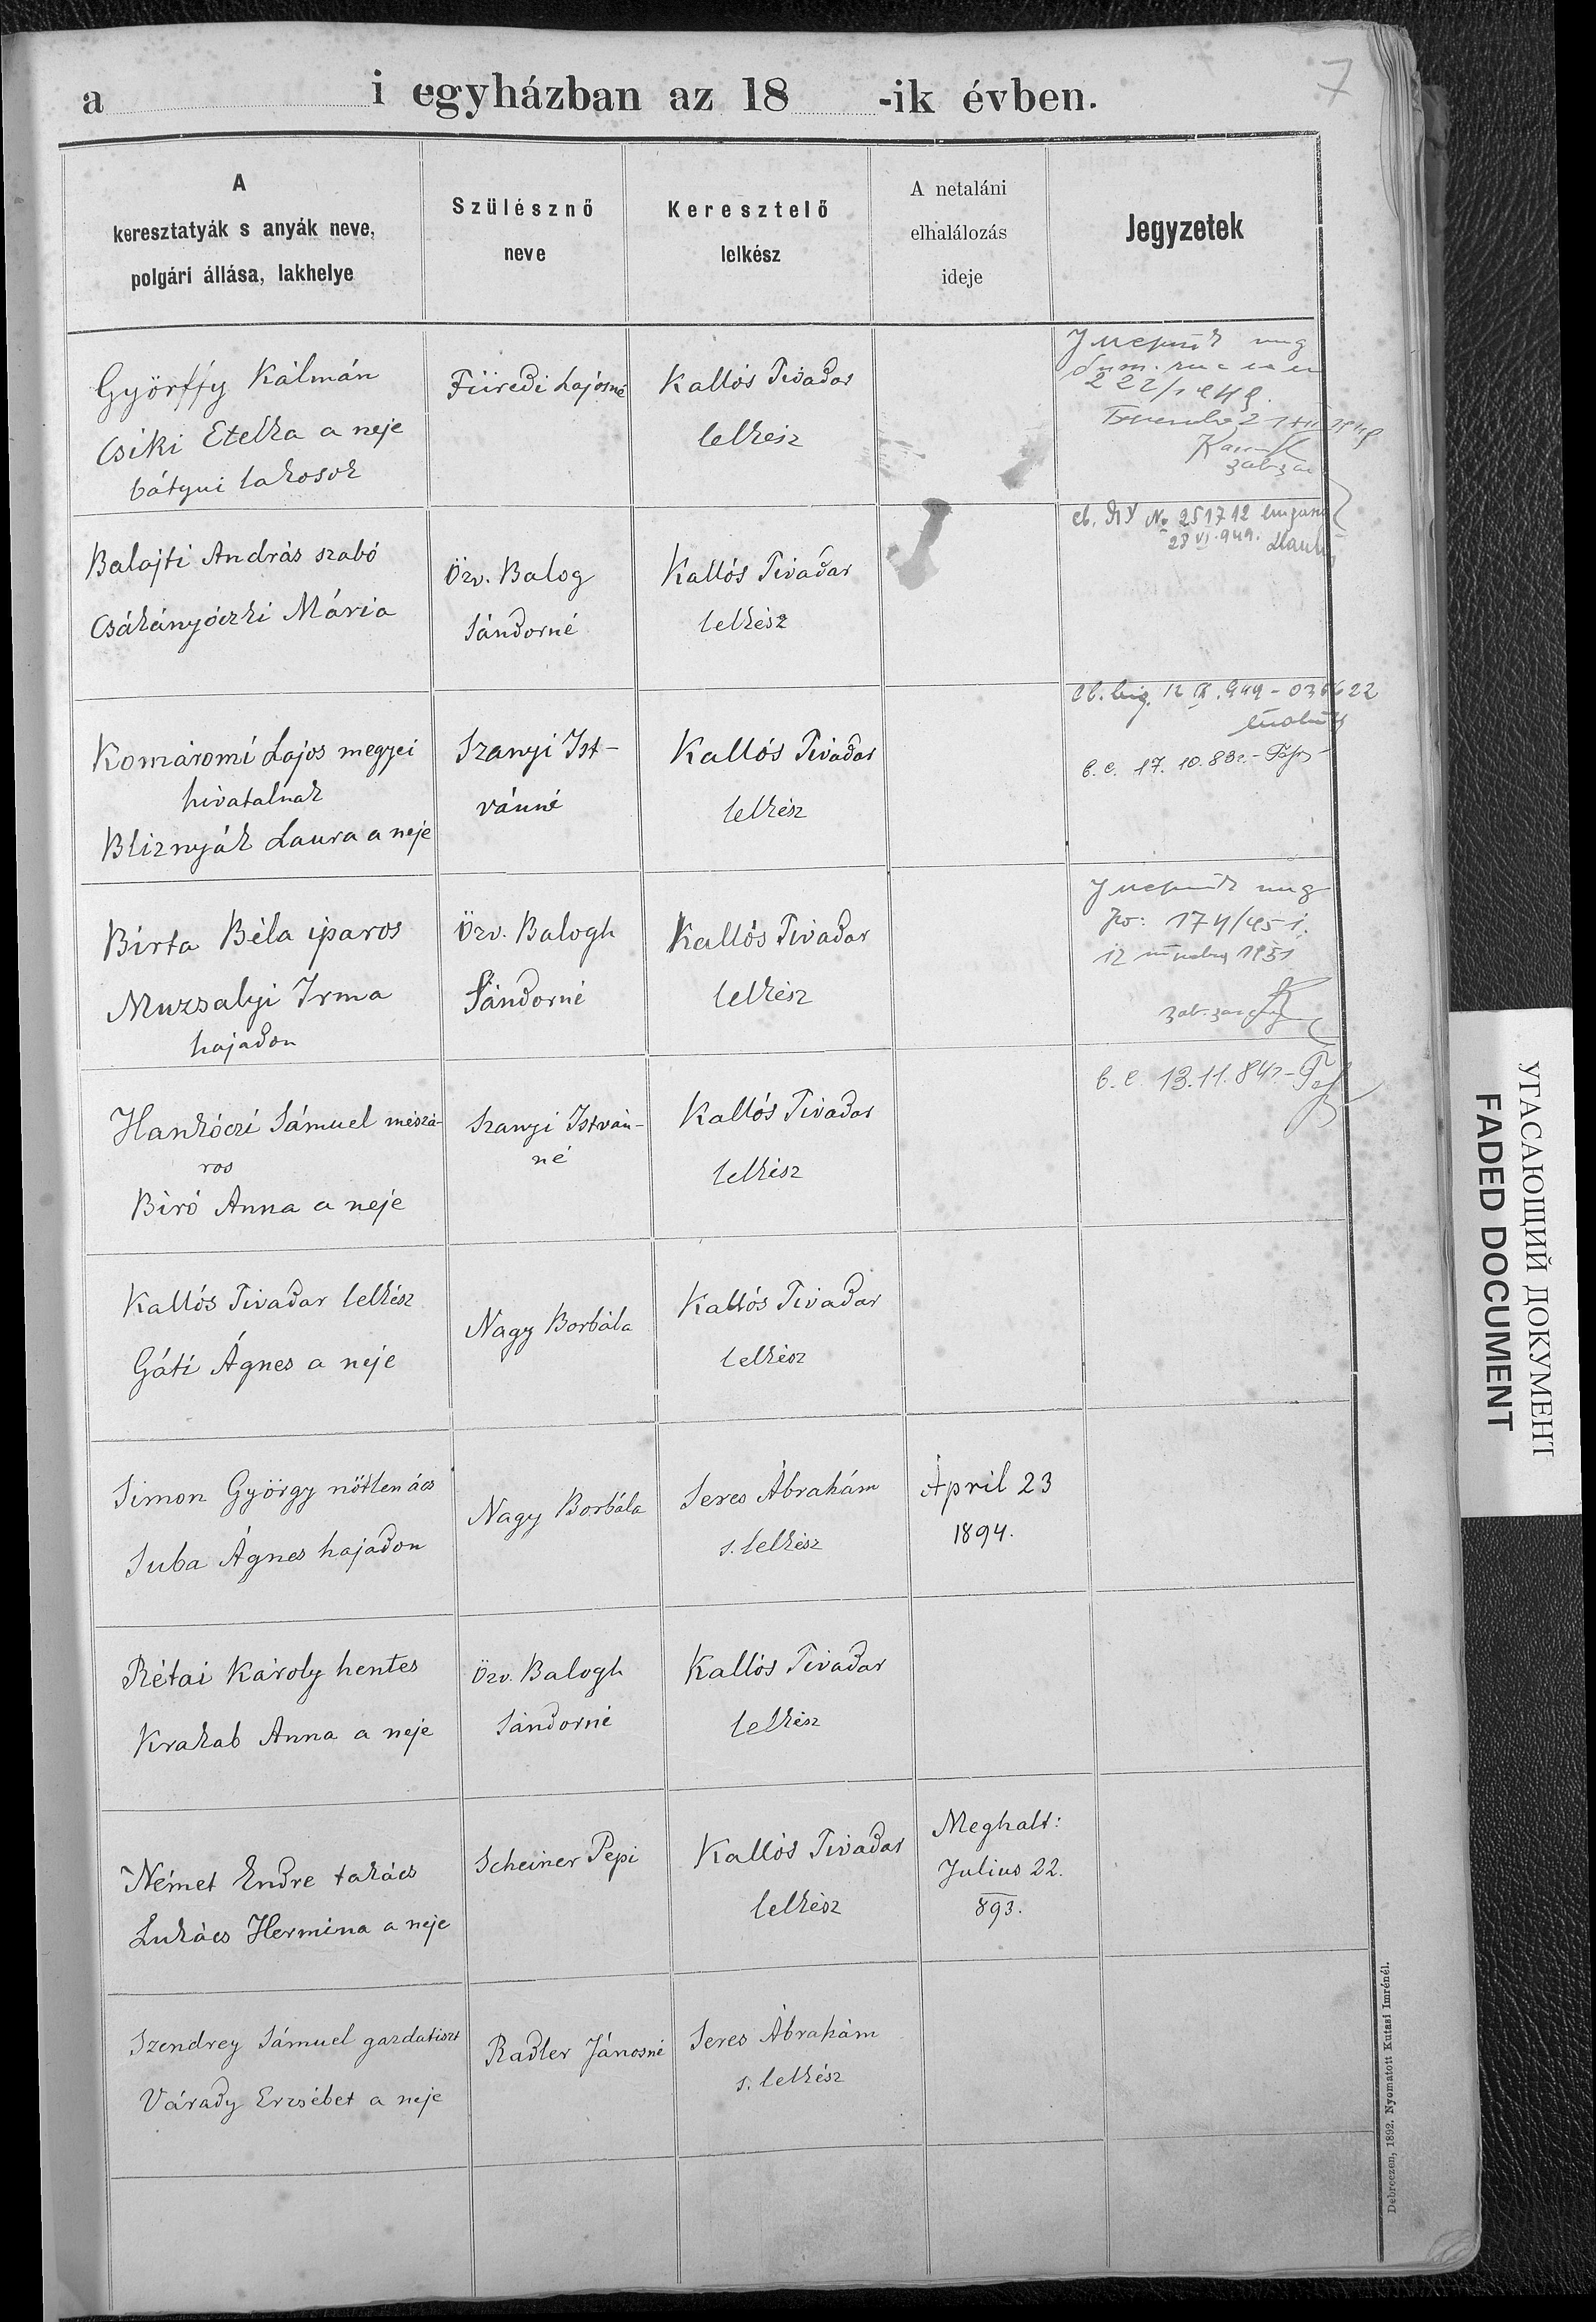 a i egyházban az 18 -ik évben.
7
A
keresztatyák s anyák neve,
polgári állása, lakhelye
Szülésznő
neve
Keresztelő
lelkész
A netaláni
elhalálozás
ideje
Jegyzetek
Györffy Kálmán
Csiki Etelka a neje
bátyui lakosok
Füredi Lajosné
Kallós Tivadar
lelkész
222/
Balajti András szabó
Csákányóczki Mária
Özv. Balog
Sándorné
Kallós Tivadar
lelkész
№ 251712
28 VI. 949.
Komáromi Lajos megyei
hivatalnak
Bliznyák Laura a neje
Szanyi Ist-
vánné
Kallós Tivadar
lelkész
12 IX. 949 -
17. 10. 83
Birta Béla iparos
Muzsalyi Irma
hajadon
Özv. Balogh
Sándorné
Kallós Tivadar
lelkész
174/45
12 1951
Hankóczi Sámuel mészá-
ros
Biró Anna a neje
Szanyi István-
né
Kallós Tivadar
lelkész
13. 11. 84
Kallós Tivadar lelkész
Gáti Ágnes a neje
Nagy Borbála
Kallós Tivadar
lelkész
Simon György nőtlen ács
Suba Ágnes hajadon
Nagy Borbála
Seres Ábrahám
s. lelkész
April 23
1894.
Rétai Károly hentes
Krakab Anna a neje
Özv. Balogh
Sándorné
Kallós Tivadar
lelkész
Német Endre takács
Lukács Hermina a neje
Scheiner Pepi
Kallós Tivadar
lelkész
Meghalt:
Julius 22.
893.
Szendrey Sámuel gazdatiszt
Várady Erzsébet a neje
Radler Jánosné
Seres Ábrahám
s. lelkész
Debreczen, 1892. Nyomatott Kutasi Imrénél.
УГАСАЮЩИЙ ДОКУМЕНТ
FADED DOCUMENT